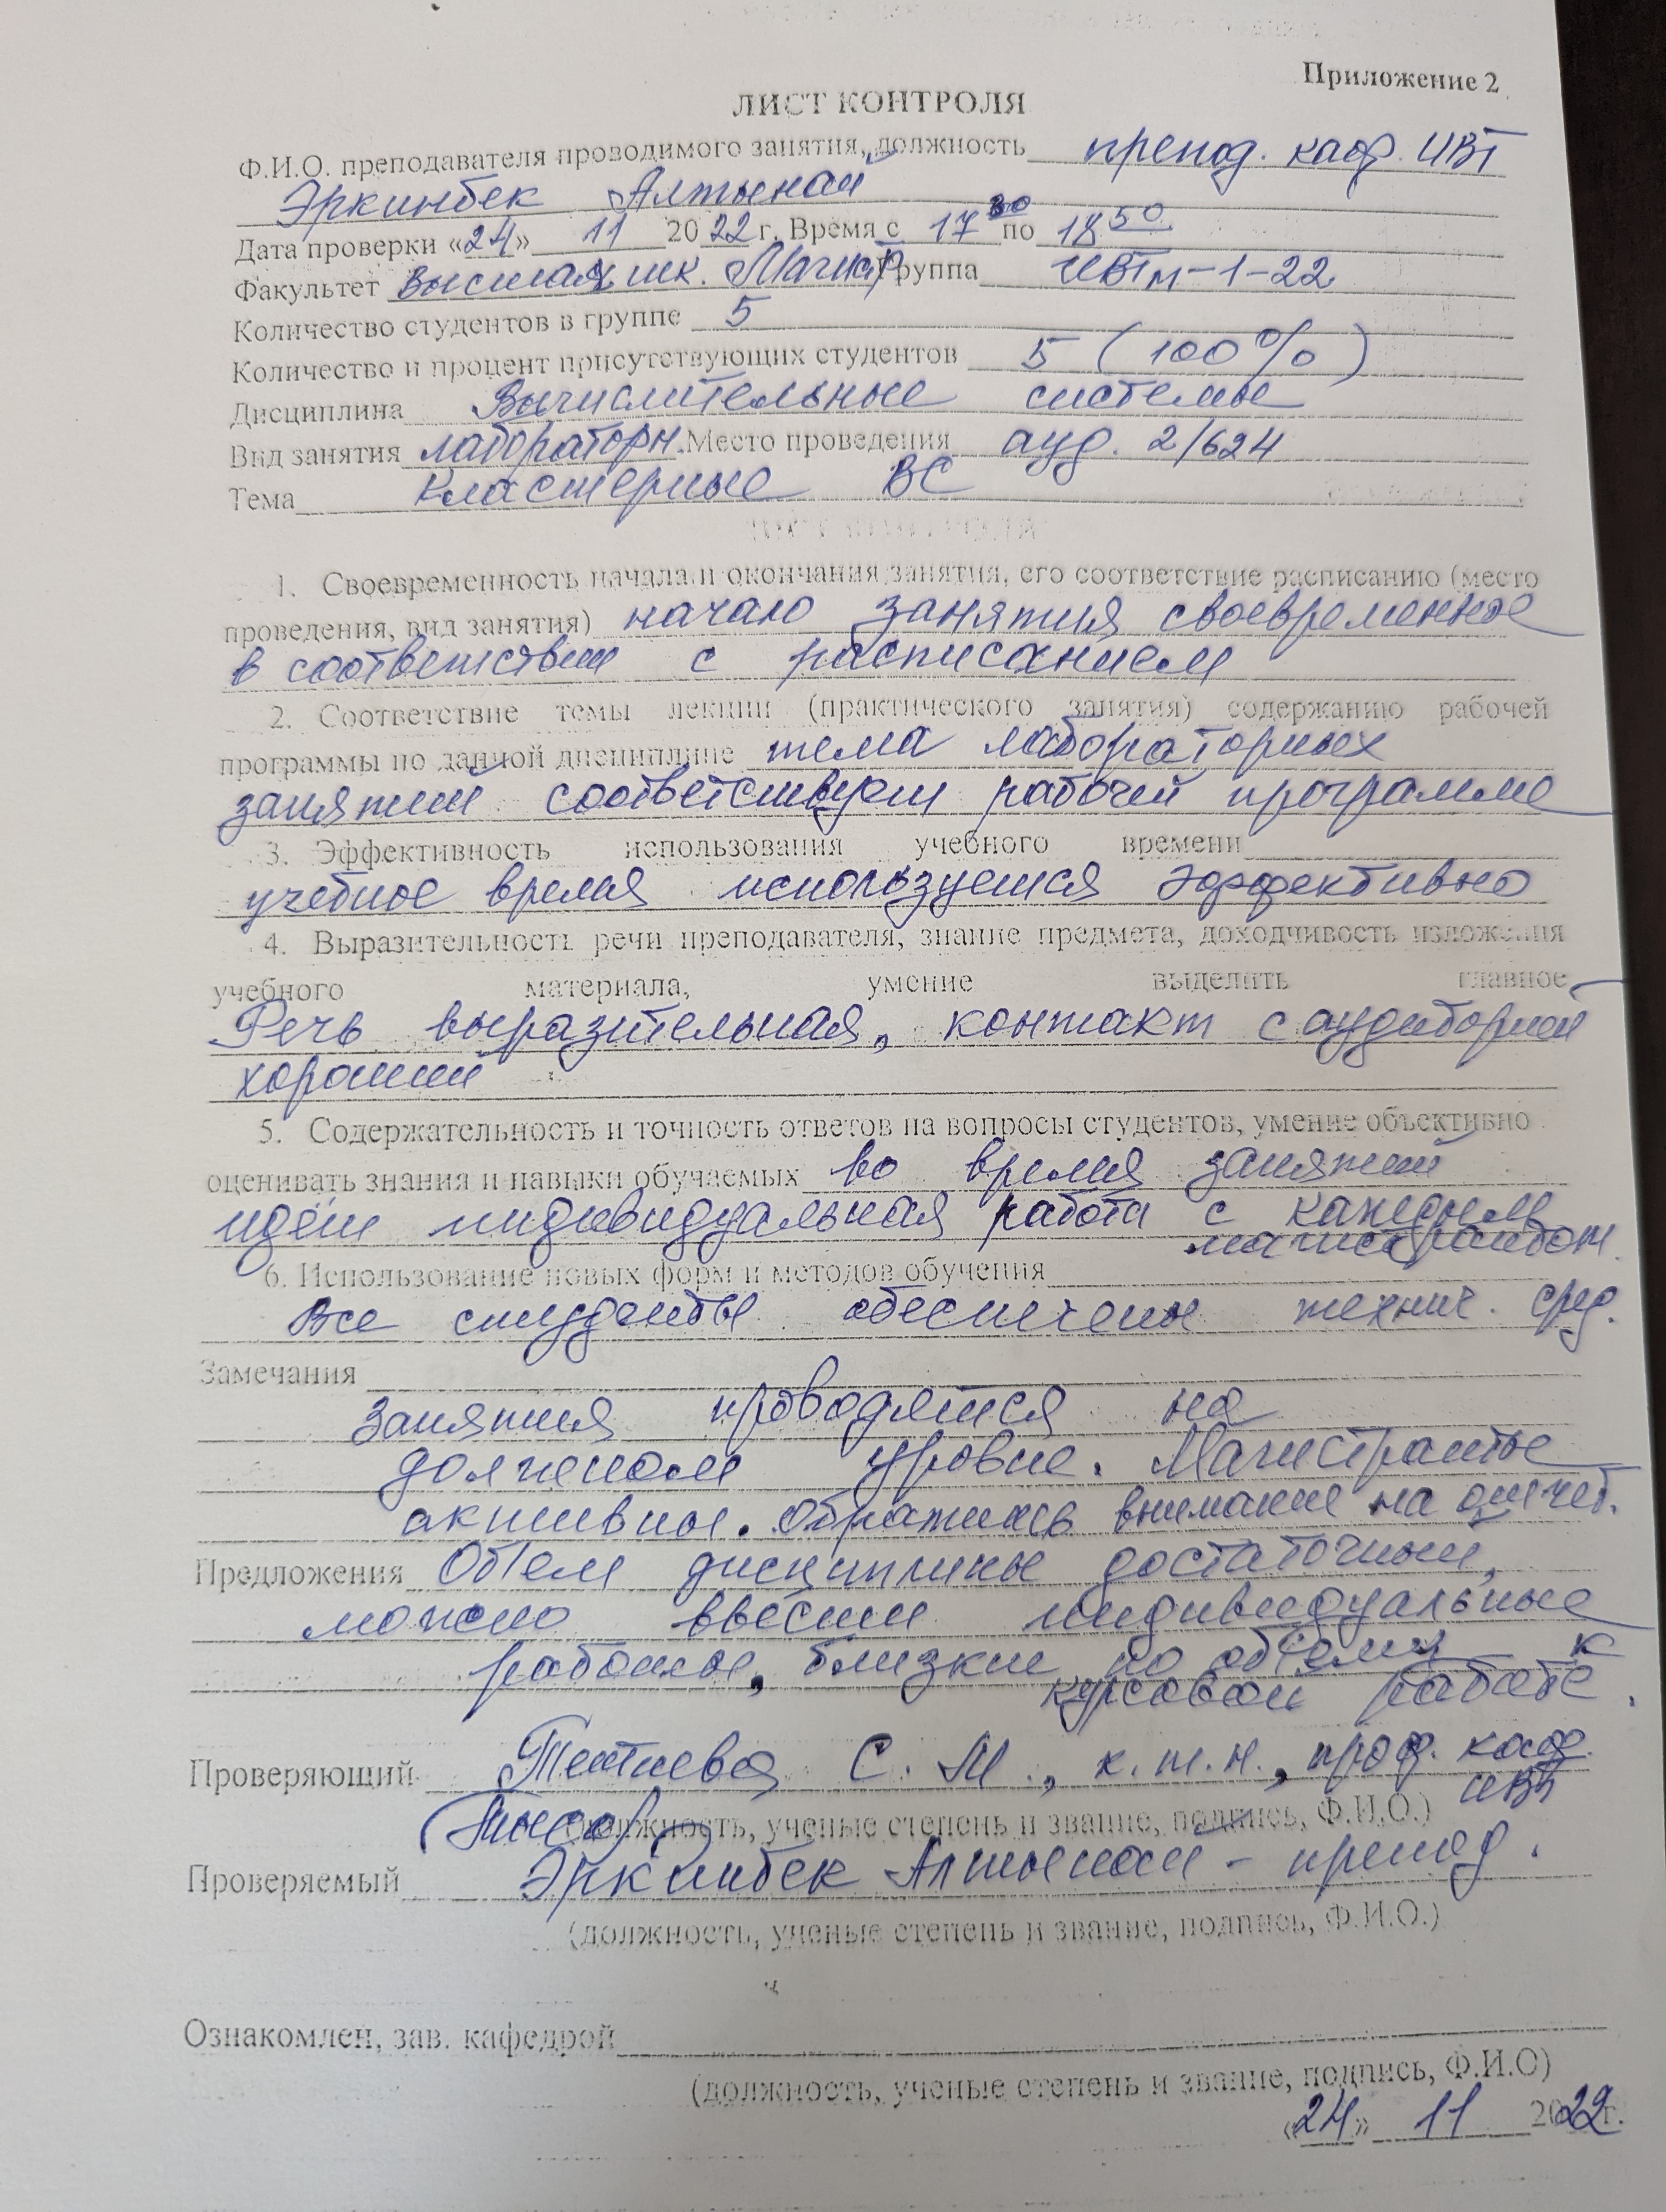 Приложение 2
ЛИСТ КОНТРОЛЯ
Ф.И.О. преподавателя проводимого занятия, должность препод. каф. ИВТ
Эркинбек Алтынай
Дата проверки «24» 11 2022 г. Время с 17 30 по 18 50
Факультет Высшая шк. Магистр Группа ИВТм-1-22
Количество студентов в группе 5
Количество и процент присутствующих студентов 5 (100%)
Дисциплина Вычислительные системы
Вид занятия лабораторн. Место проведения ауд. 2/624
Тема Кластерные ВС
1. Своевременность начала и окончания занятия, его соответствие расписанию (место
проведения, вид занятия) начало занятия своевременное
в соответствии с расписанием
2. Соответствие темы лекции (практического занятия) содержанию рабочей
программы по данной дисциплине тема лабораторных
занятий соответствует рабочей программе
3. Эффективность использования учебного времени
учебное время используется эффективно
4. Выразительность речи преподавателя, знание предмета, доходчивость изложения
учебного материала, умение выделить главное
Речь выразительная, контакт с аудиторией
хороший
5. Содержательность и точность ответов на вопросы студентов, умение объективно
оценивать знания и навыки обучаемых во время занятий
идёт индивидуальная работа с каждым
магистрантом.
6. Использование новых форм и методов обучения
Все студенты обеспечены технич. сред.
Замечания
Занятия проводятся на
должном уровне. Магистранты
активные. Обратить внимание на
Предложения Объем дисциплины достаточный,
можно ввести индивидуальные
работы, близкие по объему к
курсовой работе.
Проверяющий С. М., к.т.н., проф. каф.
ИВТ
(должность, ученые степень и звание, подпись, Ф.И.О.)
Проверяемый Эркинбек Алтынай - препод.
(должность, ученые степень и звание, подпись, Ф.И.О.)
Ознакомлен, зав. кафедрой
(должность, ученые степень и звание, подпись, Ф.И.О)
«24» 11 2022 г.